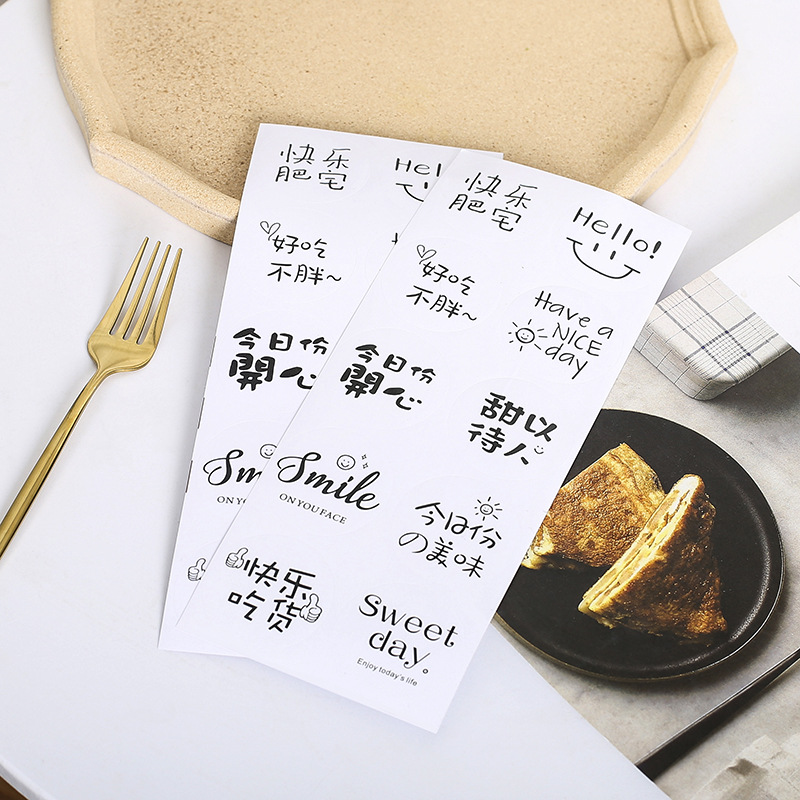 快乐
肥宅
Hel
好吃
不胖~
今日份
開心
Smile
ON YOU
快乐
肥宅
Hello!
好吃
不胖~
Have a
NICE
day
今日份
開心
甜以
待人
Smile
ON YOU FACE
今日份
の美味
快乐
吃货
sweet
day。
Enjoy today's life